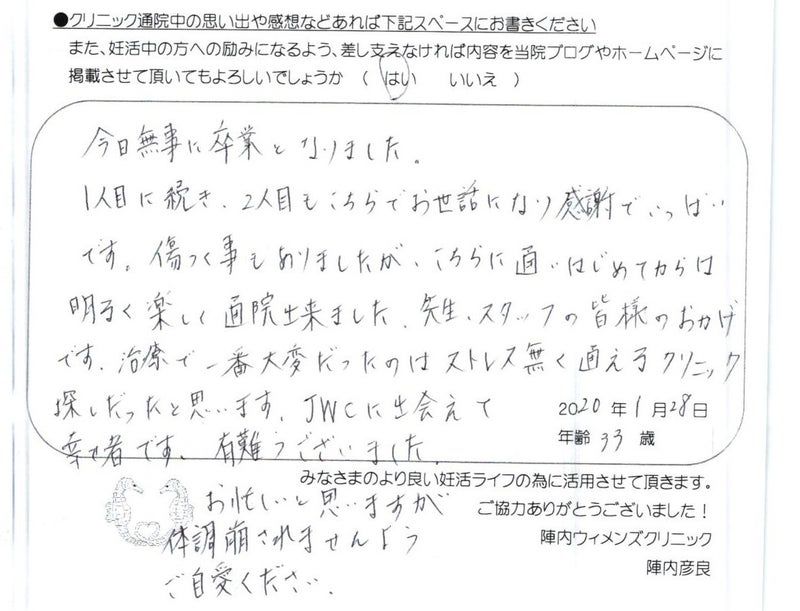 ●クリニック通院中の思い出や感想などあれば下記スペースにお書きください
また、妊活中の方への励みになるよう、差し支えなければ内容を当院ブログやホームページに
掲載させて頂いてもよろしいでしょうか （ はい　いいえ ）
今日無事に卒業となりました。
1人目に続き、2人目もこちらでお世話になり感謝でいっぱい
です。傷つく事もありましたが、こちらに通いはじめてからは
明るく楽しく通院出来ました。先生、スタッフの皆様のおかげ
です。治療で一番大変だったのはストレス無く通えるクリニック
探しだったと思います。JWCに出会えて
幸せ者です。有難うございました。
2020年1月28日
年齢 33 歳
みなさまのより良い妊活ライフの為に活用させて頂きます。
ご協力ありがとうございました！
陣内ウィメンズクリニック
陣内彦良
お忙しいと思いますが
体調崩されませんよう
ご自愛ください。